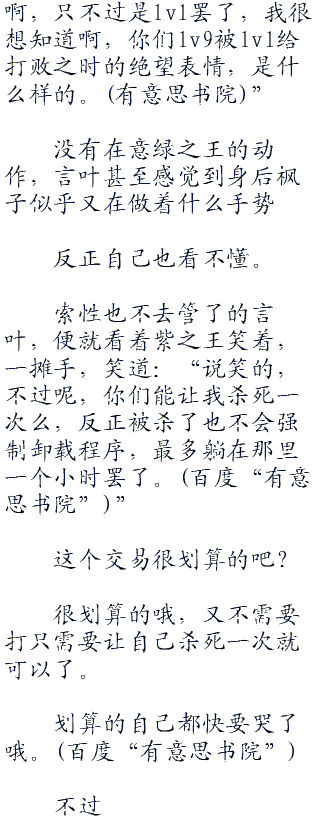 啊，只不过是lv1罢了，我很
想知道啊，你们lv9被lv1给
打败之时的绝望表情，是什
么样的。(有意思书院)”
没有在意绿之王的动
作，言叶甚至感觉到身后枫
子似乎又在做着什么手势
反正自己也看不懂。
索性也不去管了的言
叶，便就看着紫之王笑着，
一摊手，笑道：“说笑的，
不过呢，你们能让我杀死一
次么，反正被杀了也不会强
制卸载程序，最多躺在那里
一个小时罢了。(百度“有意
思书院”)”
这个交易很划算的吧？
很划算的哦，又不需要
打只需要让自己杀死一次就
可以了。
划算的自己都快要哭了
哦。(百度“有意思书院”)
不过